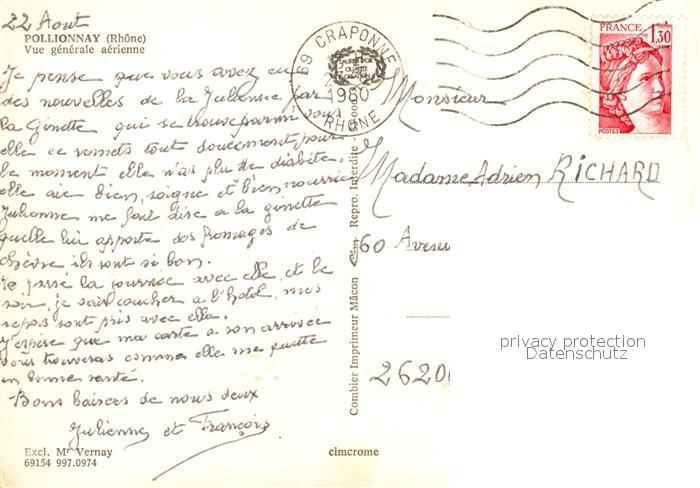 22 Aout
POLLIONNAY (Rhône)
Vue générale aérienne
Je pense que vous avez eu
des nouvelles de la Julienne par
la Ginette qui se trouve parmi vous
elle se remets tout doucement pour
le moment elle n'as plus de diabète.
elle aie bien, soigne et bien nourrie
Julienne me fait dire a la ginette
quelle lui apporte des fromages de
chèvre ils sont si bon.
Je passé la journée avec elle et le
soir, je vais coucher a l'hotel, mes
repas sont pris avec elle.
J'espère que ma carte a son arrivée
vous trouveras comme elle me quitte
en bonne santé.
Bons baisers de nous deux
Julienne et François
Excl. Mr Vernay
69154 997.0974
cimcrome
Combier Imprimeur Mâcon Cim Repro. Interdite
69 CRAPONNE
1980
RHÔNE
FRANCE
1,30
POSTES
Monsieur
Madame Adrien RICHARD
60 Avenu
2620
privacy protection
Datenschutz